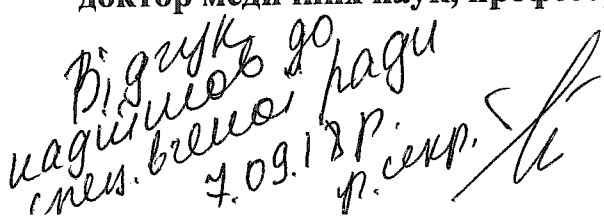 доктор медичних наук, професо
Відгук
надійшов до
спец. вченої ради
7.09.18 р.
р. секр.